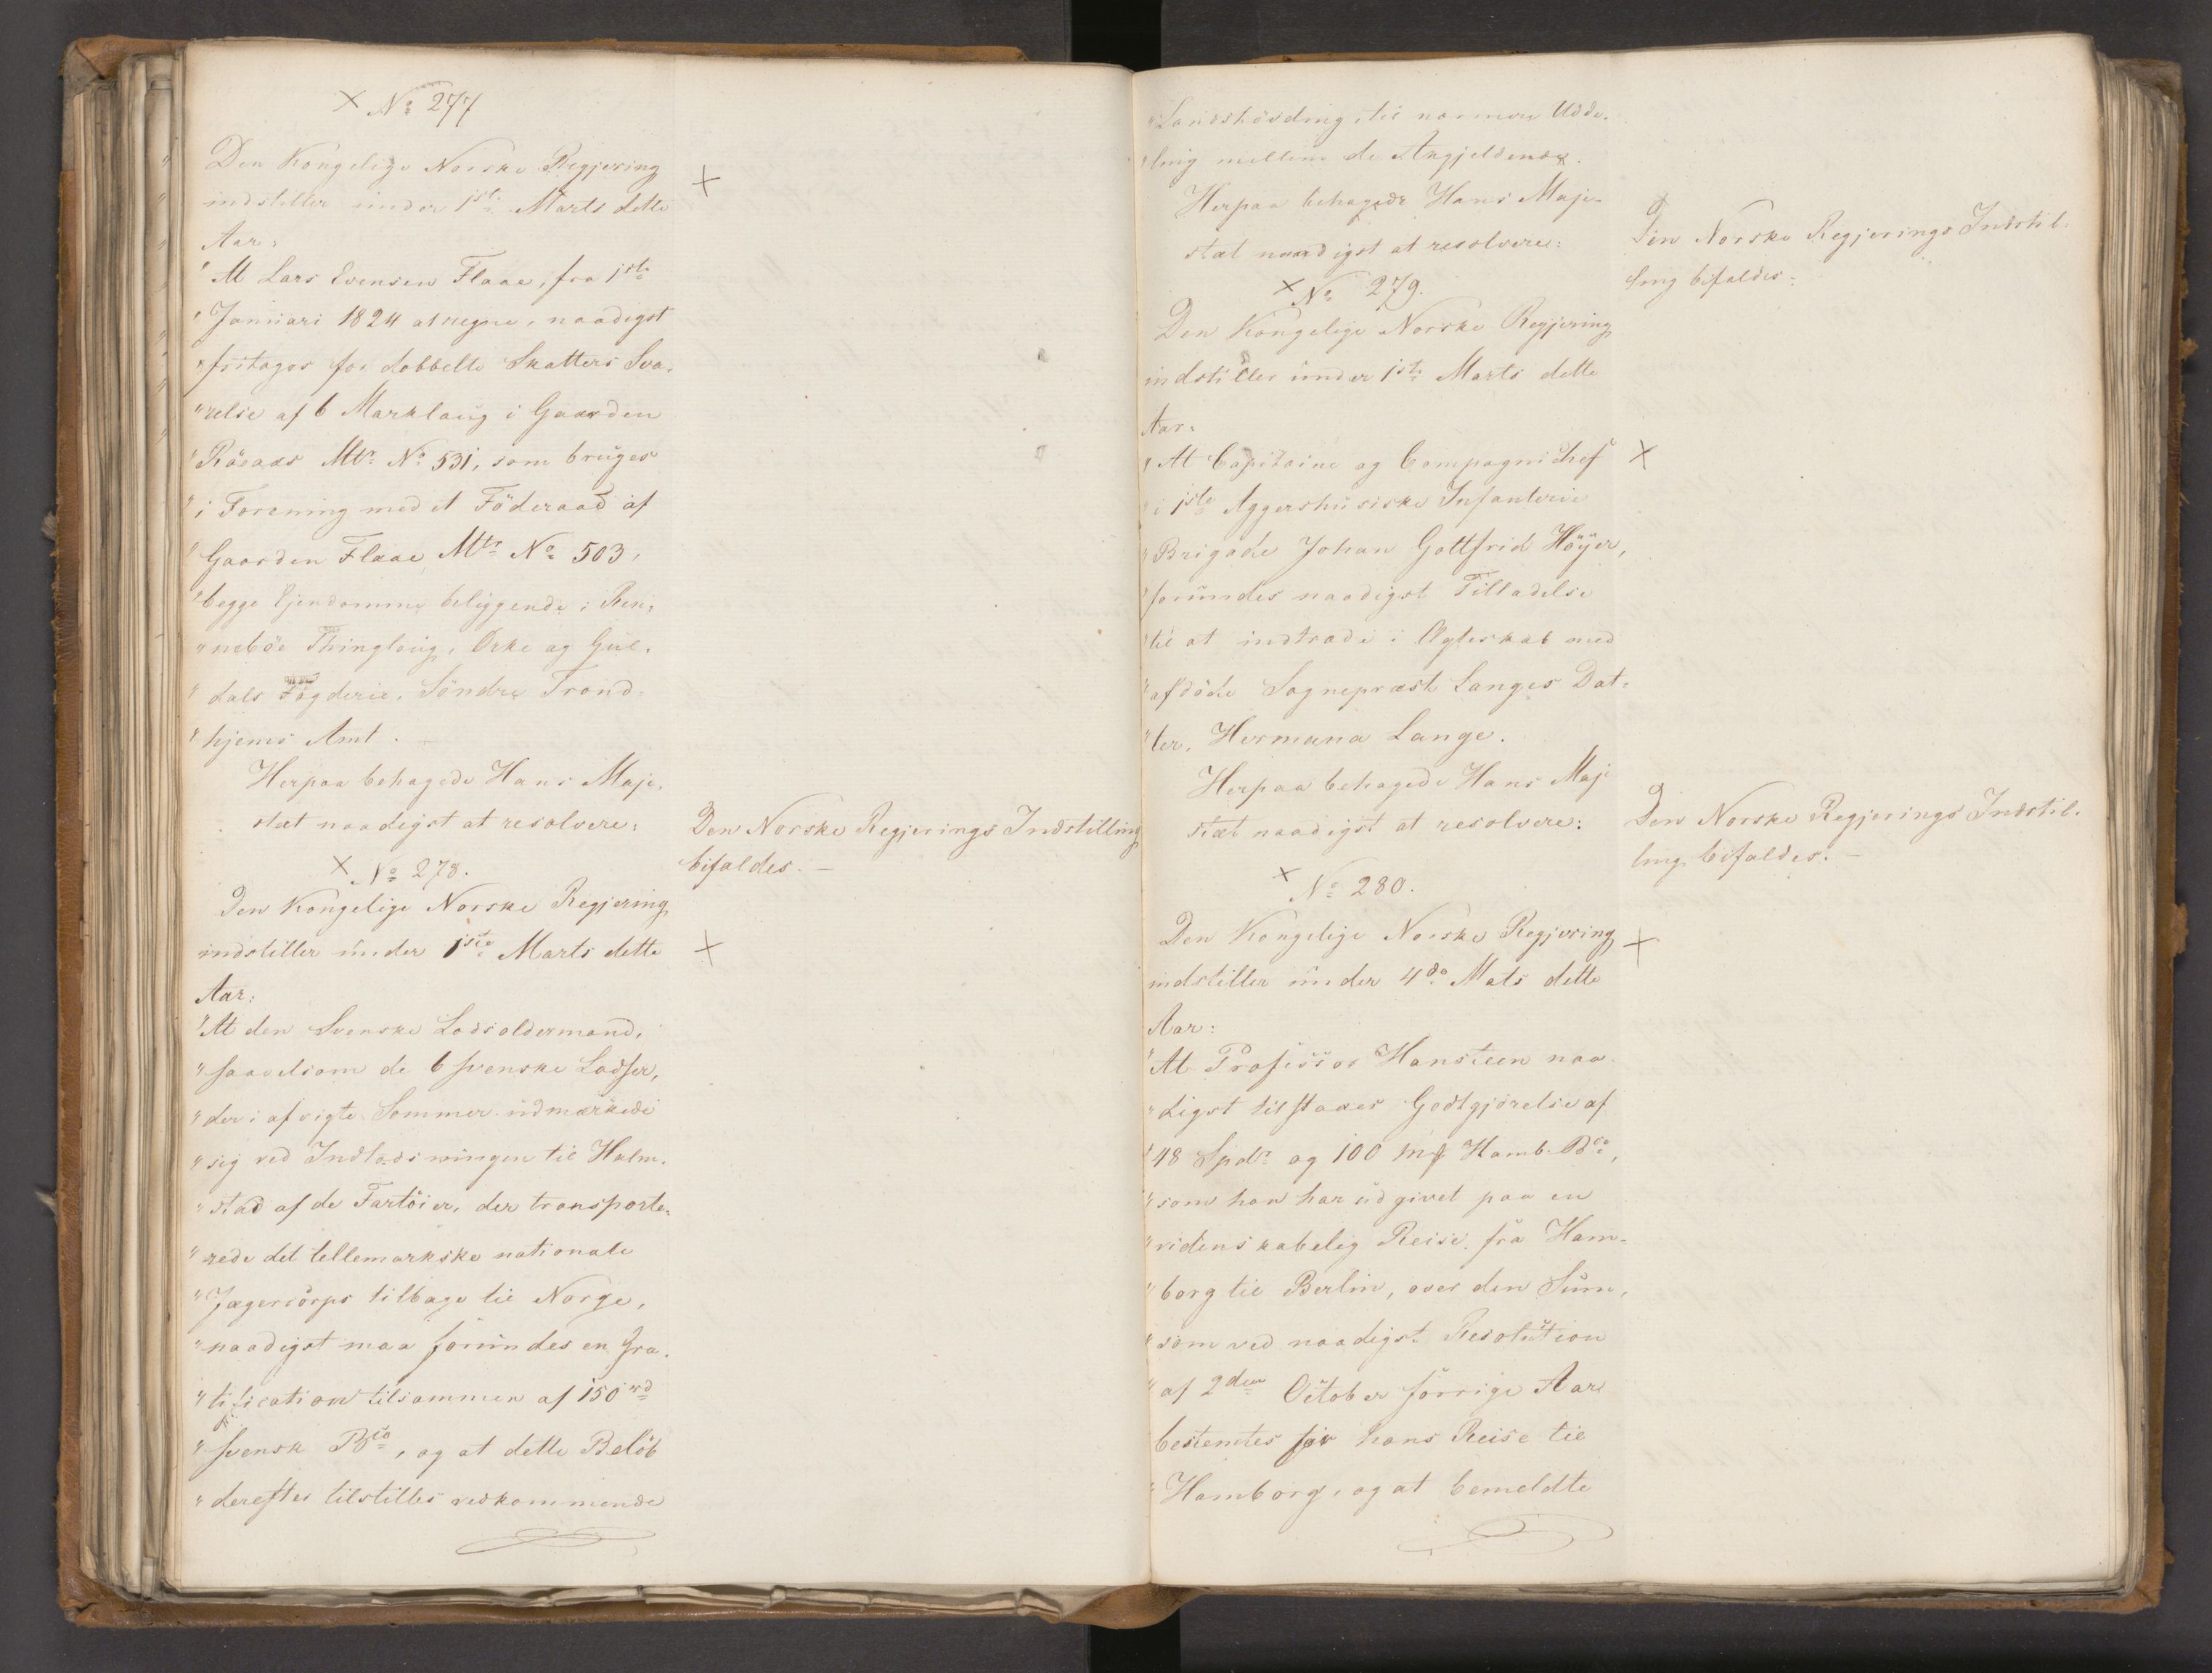 × No 277
Den Kongelige Norske Regjering
×
indstiller under 1ste Marts dette
Aar:
"At Lars Evensen Flaae, fra 1ste
"Januari 1824 at regne, naadigst
"fritages for dobbelte Skatters Sva-
"relse af 6 Marklaug i Gaarden
"Röeaas Mtr No 531, som bruges
"i Forening med et Föderaad af
"Gaarden Flaae, Mtr No 503,
"begge Ejendomme beliggende i Ren-
"neböe Thinglaug, Orke og Gul-
"dals Fögderie, Söndre Trond-
"hjems Amt. —
Herpaa behagede Hans Maje-
stæt naadigst at resolvere:
Den Norske Regjerings Indstilling
bifaldes. —
× No 278.
Den Kongelige Norske Regjering
indstiller under 1ste Marts dette
×
Aar:
"At den Svenske Lodsoldermand,
"saavelsom de 6 svenske Lodser,
"der i afvigte Sommer udmærkede
"sig ved Indlodsningen til Halm-
"stad af de Fartöier, der transporte-
"rede det tellemarkske nationale
"Jægercorps tilbage til Norge,
"naadigst maa forundes en Gra-
"tification tilsammen af 150 rd
"svensk Bco, og at dette Belöb
"derefter tilstilles vedkommende
"Landshövding, til nærmere Udde-
"ling mellem de Angjeldende.
Herpaa behagede Hans Maje-
stæt naadigst at resolvere:
Den Norske Regjerings Indstil-
ling bifaldes.
× No 279.
Den Kongelige Norske Regjering
indstiller under 1ste Marts dette
Aar:
"At Capitaine og Compagnichef
×
"i 1ste Aggershusiske Infanterie
"Brigade Johan Gottfrid Höyer,
"forundes naadigst Tilladelse
"til at indtræde i Ægteskab med
"afdöde Sognepræst Langes Dat-
"ter, Hermana Lange.
Herpaa behagede Hans Maje
stæt naadigst at resolvere:
Den Norske Regjerings Indstil-
ling bifaldes. —
× No 280.
Den Kongelige Norske Regjering
×
indstiller under 4de Mats dette
Aar:
"At Professor Hansteen naa-
"digst tilstaaes Godtgjörelse af
"48 Spdr og 100 mf Hamb. Bco,
"som han har udgivet paa en
"videnskabelig Reise, fra Ham-
"borg til Berlin, over den Sum,
"som ved naadigst Resolution
"af 2den October forrige Aar
bestemtes for hans Reise til
"Hamborg, og at bemeldte